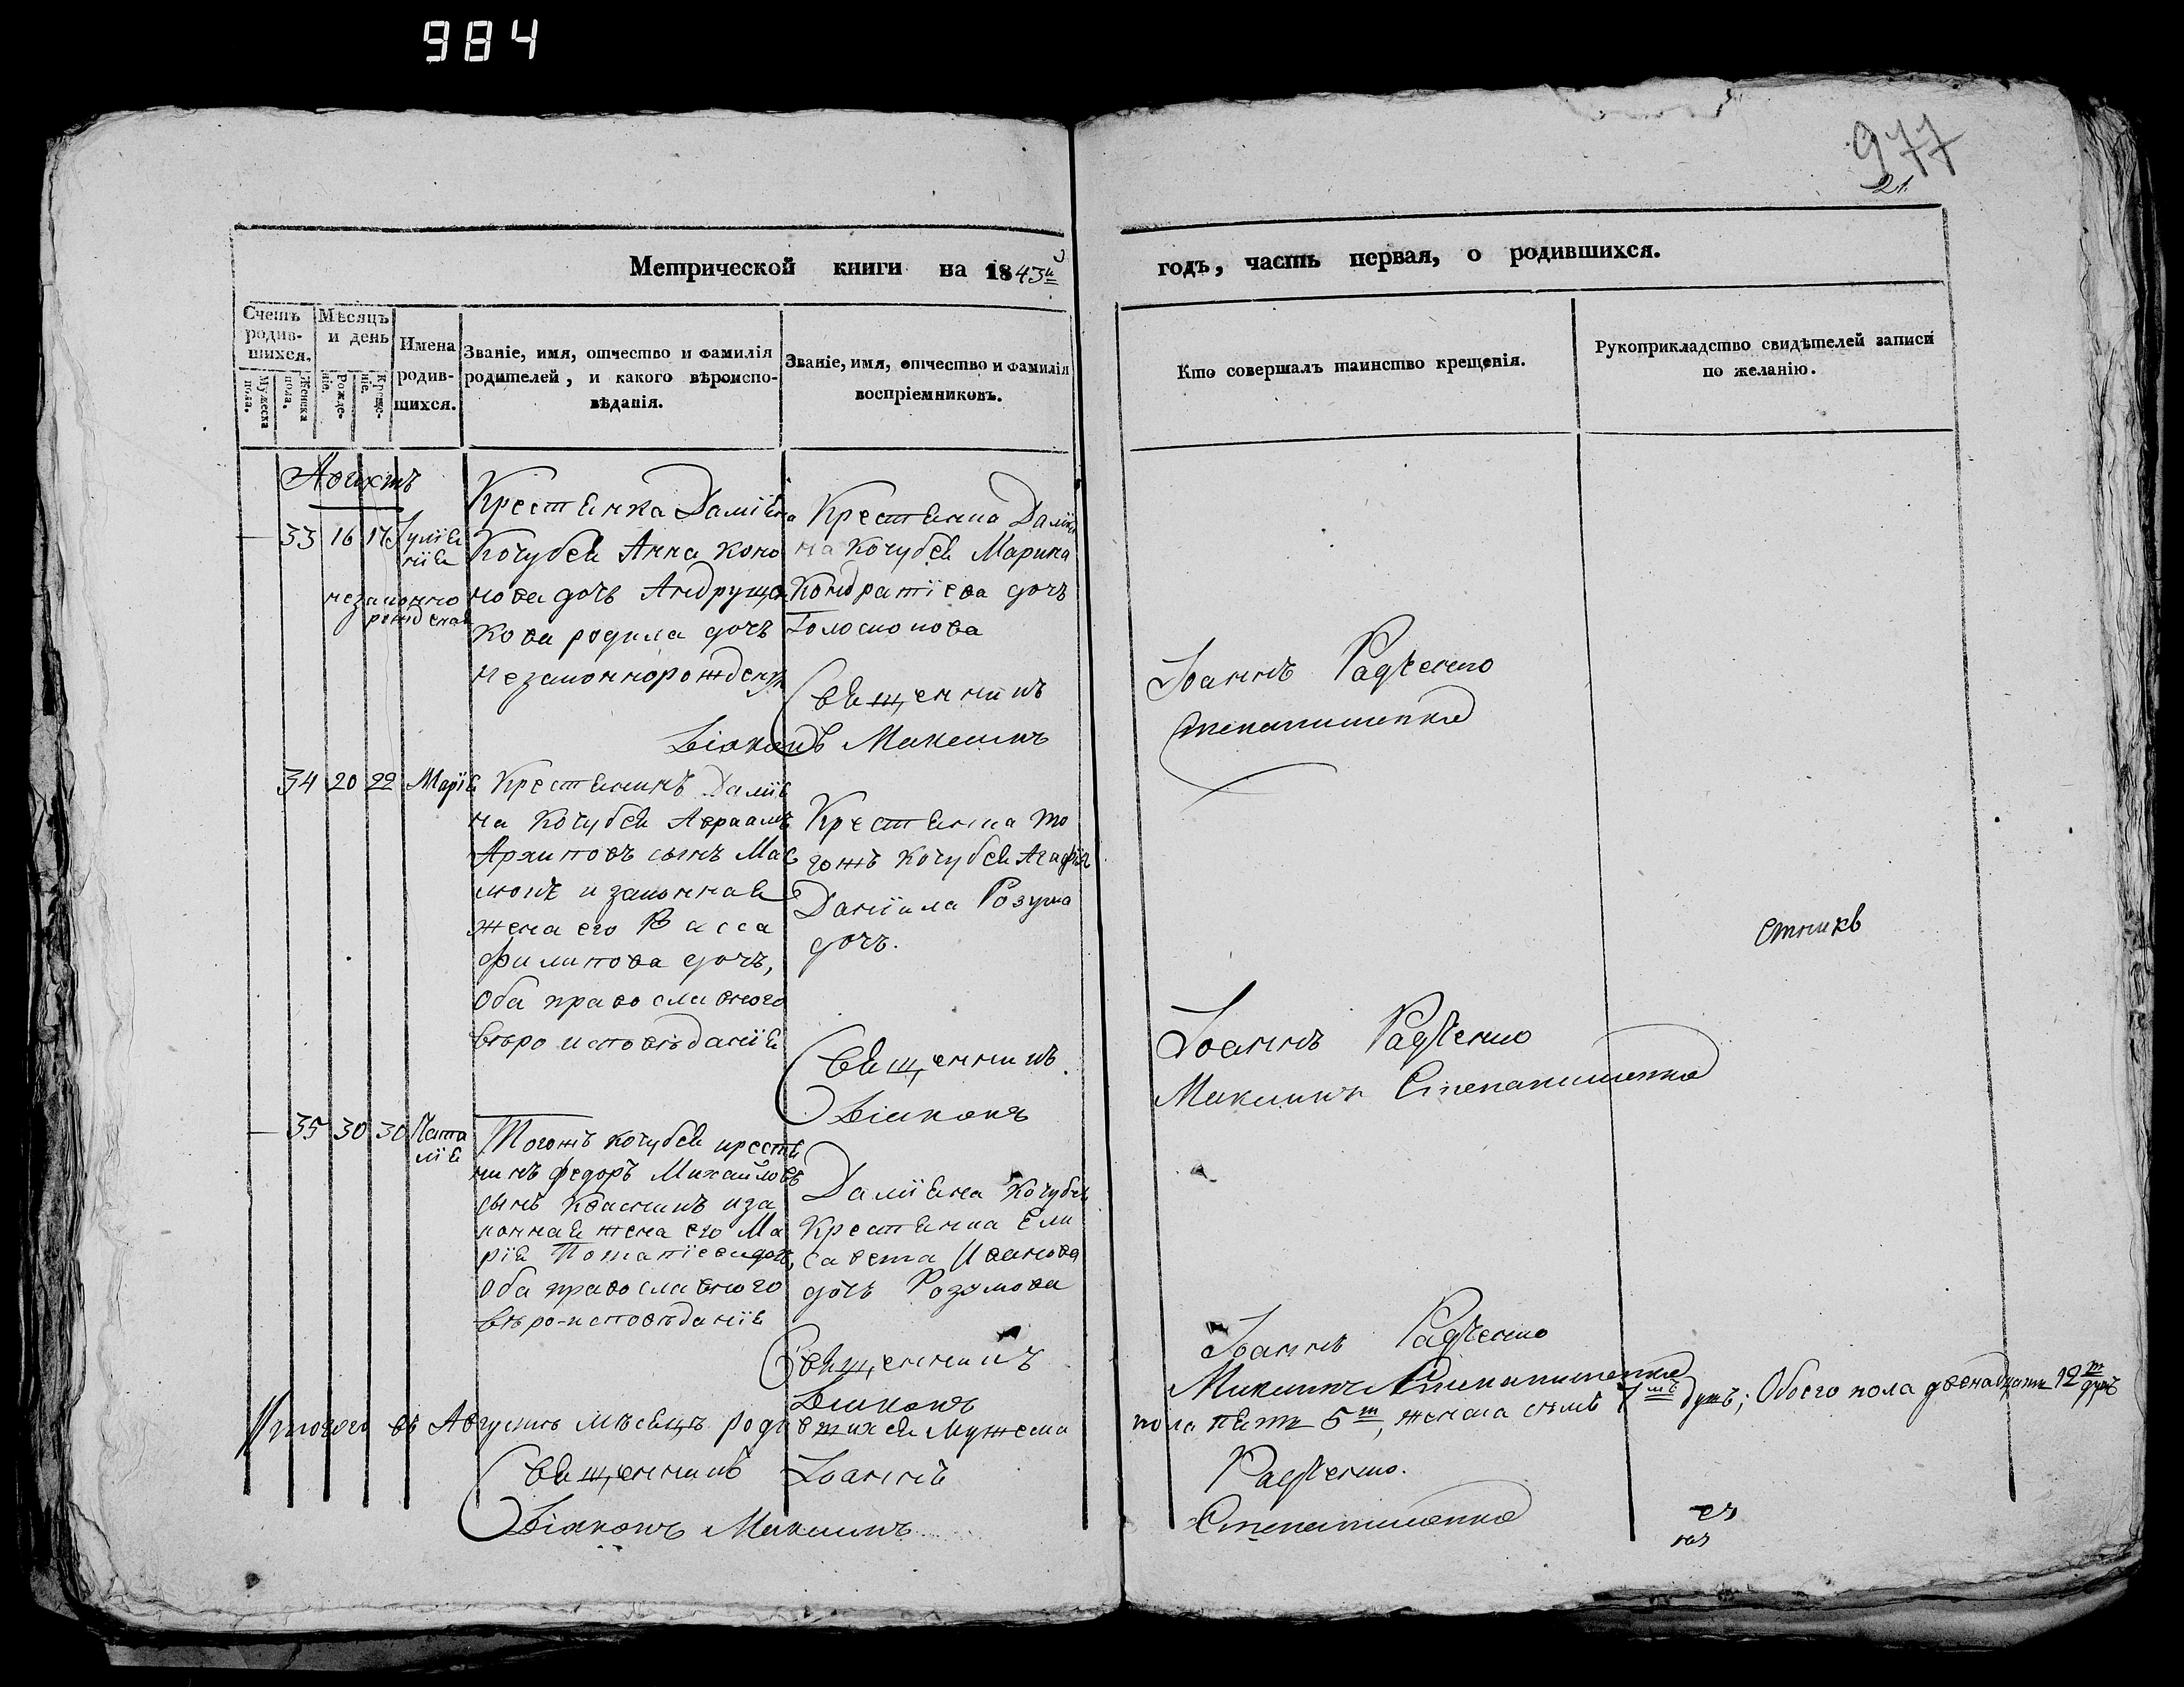 984
977
21.
Метрической книги на 1843й годъ, часть первая, о родившихся.
Счетъ родив-шихся.
Мужеска пола.
Женска пола.
Мѣсяцъ и день
Рожде-ніе.
Креще-ніе.
Имена родив-шихся.
Званіе, имя, отчество и фамилія родителей, и какого вѣроиспо-вѣданія.
Званіе, имя, отчество и фамилія воспріемниковъ.
Кто совершалъ таинство крещенія.
Рукоприкладство свидѣтелей записи по желанію.
Августъ
33 16 17 Іулія
нія
незаконно
рожденая
Крестянка Даміяна
Кочубея Анна Коно
нова дочь Андрущен
кова родила дочь
незаконнорожденую
Крестянка Даміа
на Кочубея Марина
Кондратіева дочь
Голоскокова
Священникъ Іоаннъ Радченко
Діаконъ Максимъ Степанишенко
34 20 22 Марія
Крестянинъ Даміа
на Кочубея Авраамъ
Архиповъ сынъ Мас
и законная
жена его Васса
Филипова дочь,
Оба православного
вѣроисповѣданія
Крестянка то
гожъ Кочубея Агафія
Даніила Розума
дочь.
Священникъ Іоаннъ Радченко
Діаконъ Максимъ Степанишенко
35 30 30 Ната
лія
Тогожъ Кочубея крестя
нинъ Федоръ Михайловъ
сынъ Квасникъ и за
конная жена его Ма
рія Потапіева дочь,
Оба православного
вѣро-исповѣданія
Даміяна Кочубея
Крестянка Ели
савета Иванова
дочь Розумова
Священникъ Іоаннъ Радченко
Діаконъ Максимъ Степанишенко
Итого въ Августѣ мѣсяцѣ родившихся Мужеска пола пять 5ть, женска семь 7мъ душъ; Обоего пола двенадцать 12ть душъ
Священникъ Іоаннъ Радченко.
Діаконъ Максимъ Степанишенко